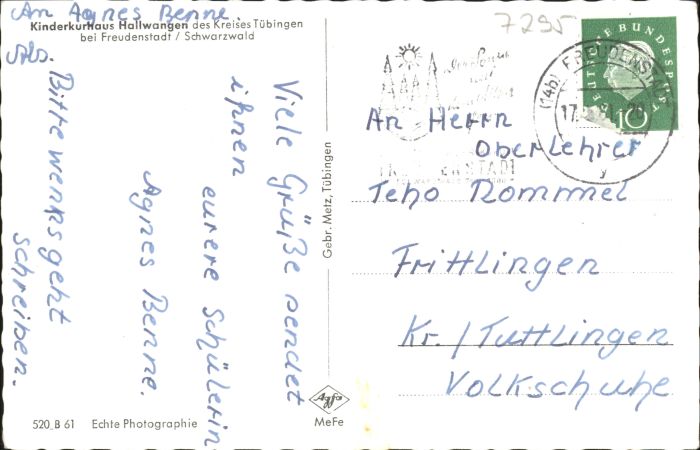 An Agnes Benne.
Kinderkurhaus Hallwangen des Kreises Tübingen
bei Freudenstadt / Schwarzwald
Abs.
Viele Grüße sendet
ihnen
eurere Schülerin
Agnes Benne.
Bitte wenns geht
schreiben.
520 B 61 Echte Photographie
Gebr. Metz, Tübingen
Agfa
MeFe
7295
(14b) FREUDENSTADT
17.
20
y
DEUTSCHE BUNDESPOST
10
An Herrn
Oberlehrer
Teho Rommel
Frittlingen
Kr./Tuttlingen
Volkschuhe